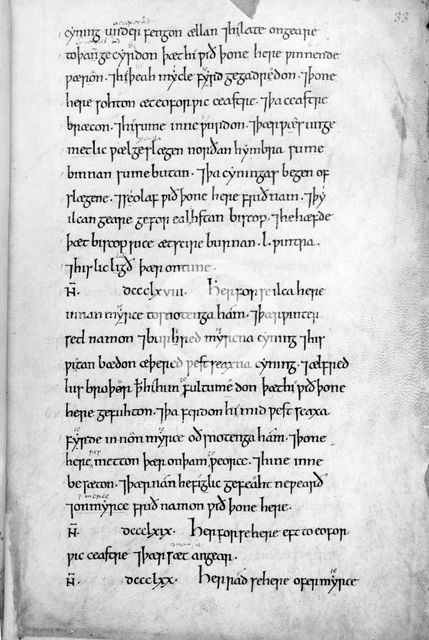 33
cyning underfengon ællan ⁊ hi late on geare
to þam gecyrdon þæt hi ƿið þone here ƿinnende
ƿæron. ⁊ hi þeah mycle fyrd gegadredon. ⁊ þone
here sohton æt eoforƿic ceastre. ⁊ þa ceastre
bræcon. ⁊ hi sume inne ƿurdon. ⁊ þær ƿæs unge
metlic ƿæl geslægen norðan hymbra sume
binnan sume butan. ⁊ þa cyningas begen of
slægene. ⁊ seo laf ƿið þone here frið nam. ⁊ þy
ilcan geare gefor ealhstan biscop. ⁊ he hæfde
þæt biscoprice æt scire burnan .l. ƿintra.
⁊ his lic ligð þær on tune.
N̄. dccclxviii. Her for se ilca here
innan myrce to snotengaham. ⁊ þær ƿinter
setl namon ⁊ burhred myrcna cyning ⁊ his
ƿitan bædon æþered ƿest seaxna cyning. ⁊ ælfred
his broþor ꝥ hi him fultumedon þæt hi ƿið þone
here gefuhton. ⁊ þa ferdon hi mid ƿest seaxa
fyrde innon myrce oð snotengaham. ⁊ þone
here metton þær on þam geƿeorce. ⁊ hine inne
besæton. ⁊ þær nan hefiglic gefeaht ne ƿearð
⁊ on myrce frið namon ƿið þone here.
N̄. dccclxix. Her for se here eft to eofor
ƿic ceastre ⁊ þær sæt an gear.
N̄. dccclxx. Her rad se here ofer myrce